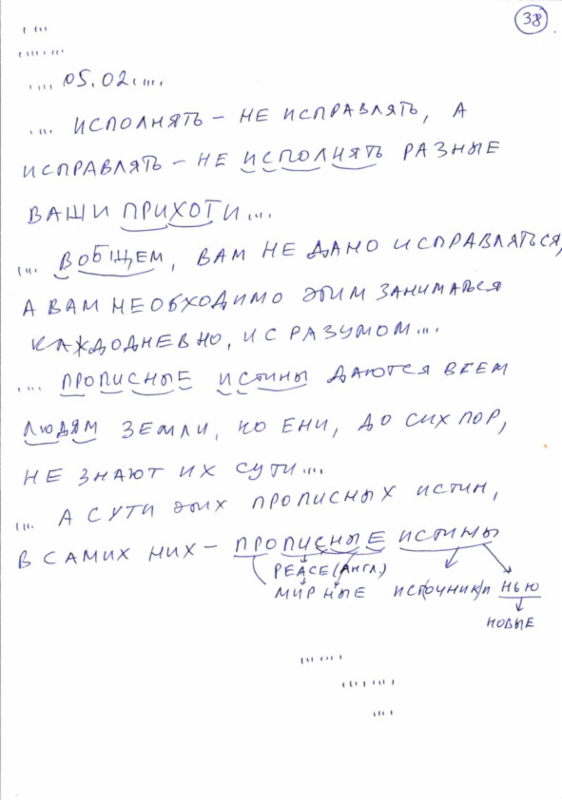 38
.... 05.02.....
.... ИСПОЛНЯТЬ – НЕ ИСПРАВЛЯТЬ, А
ИСПРАВЛЯТЬ – НЕ ИСПОЛНЯТЬ РАЗНЫЕ
ВАШИ ПРИХОТИ....
.... ВОБЩЕМ, ВАМ НЕ ДАНО ИСПРАВЛЯТЬСЯ,
А ВАМ НЕОБХОДИМО ЭТИМ ЗАНИМАТЬСЯ
КАЖДОДНЕВНО, И С РАЗУМОМ....
.... ПРОПИСНЫЕ ИСТИНЫ ДАЮТСЯ ВСЕМ
ЛЮДЯМ ЗЕМЛИ, НО ЕНИ, ДО СИХ ПОР,
НЕ ЗНАЮТ ИХ СУТИ....
.... А СУТИ ЭТИХ ПРОПИСНЫХ ИСТИН,
В САМИХ НИХ – ПРОПИСНЫЕ ИСТИНЫ
PEACE (АНГЛ.)
МИРНЫЕ ИСТОЧНИКИ НЬЮ
НОВЫЕ